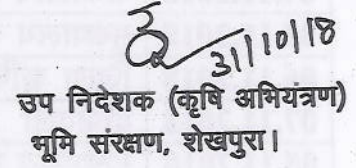 31/10/18
उप निदेशक (कृषि अभियंत्रण)
भूमि संरक्षण, शेखपुरा।